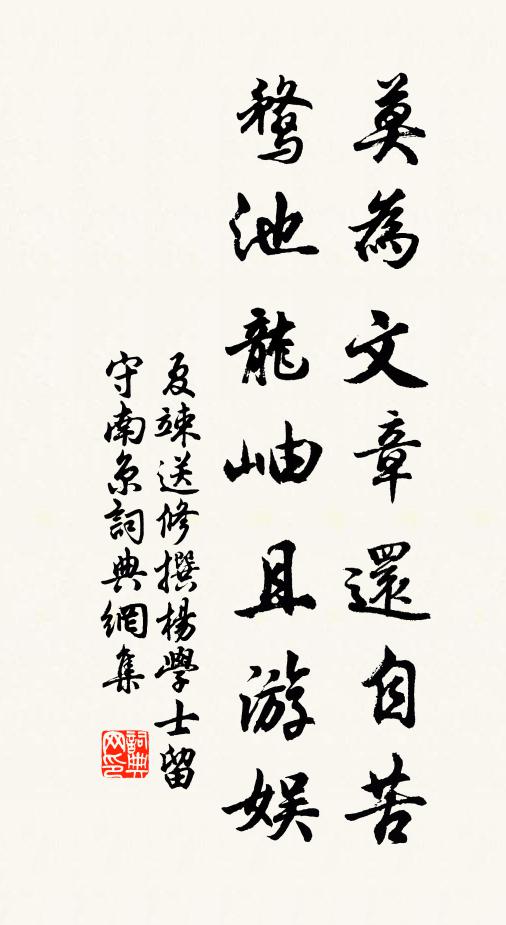 莫為文章還自苦
鶩池龍岫且游娛
夏竦送修撰楊學士留
守南京詞典網集
詞典网印